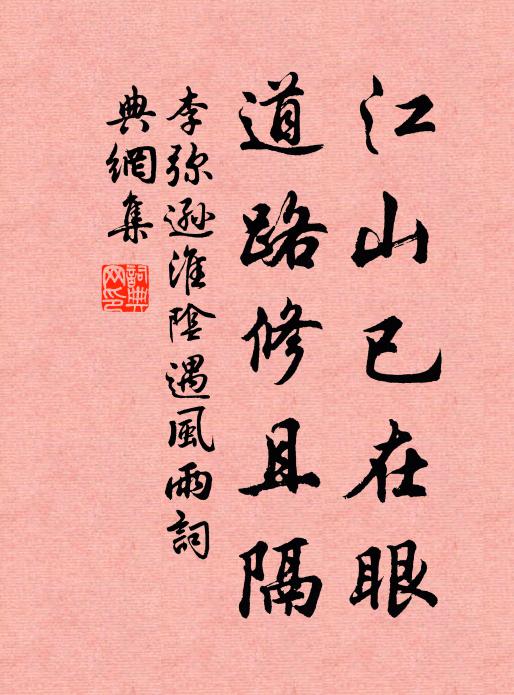 江山已在眼
道路修且隔
李弥遜淮陰遇風雨詞
典網集
詞典
网印